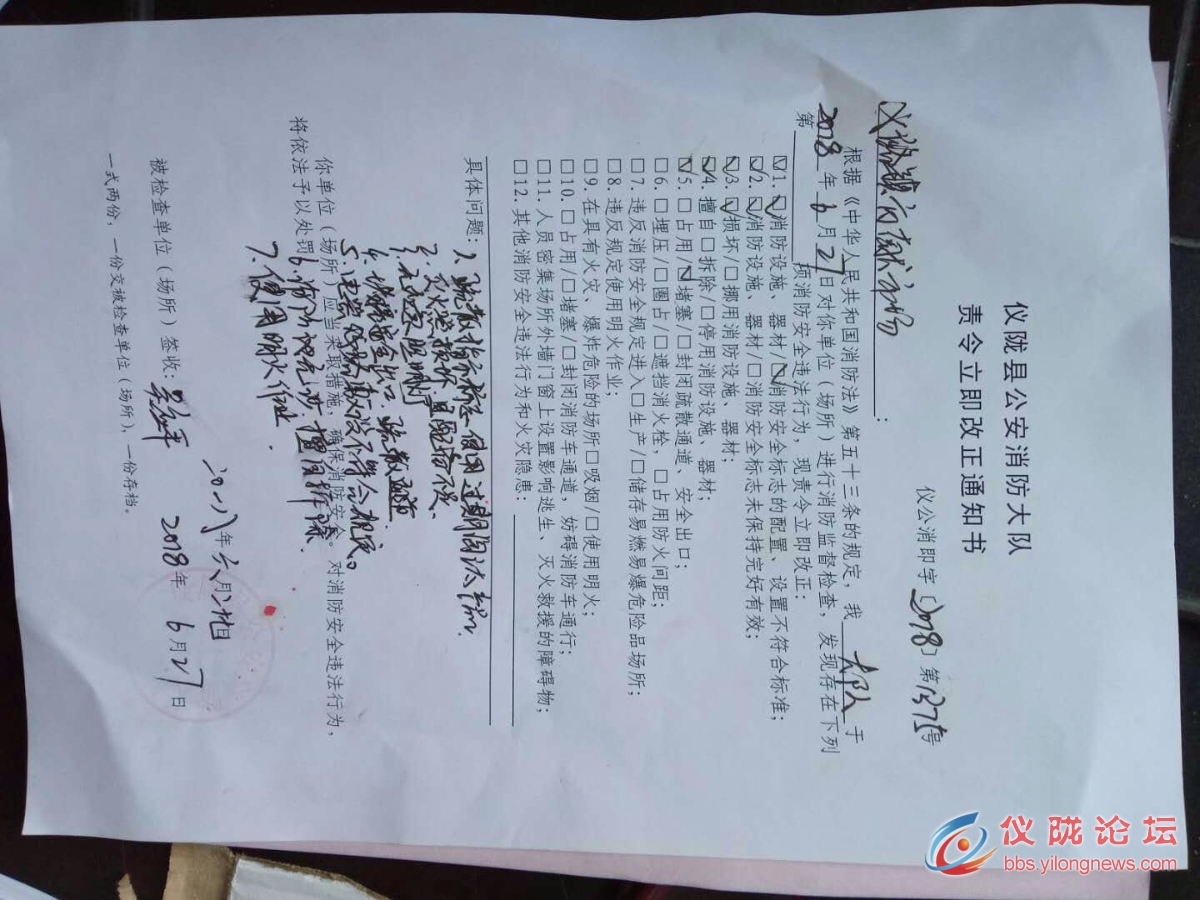 仪陇县公安消防大队
责令立即改正通知书
仪公消即字〔2018〕第1375号
市场:
根据《中华人民共和国消防法》第五十三条的规定,我大队于
2018年6月27日对你单位(场所)进行消防监督检查,发现存在下列
第 项消防安全违法行为,现责令立即改正:
☑1.☑消防设施、器材/☑消防安全标志的配置、设置不符合标准;
☑2.☑消防设施、器材/□消防安全标志未保持完好有效;
☑3.☑损坏/□挪用消防设施、器材;
☑4.擅自□拆除/□停用消防设施、器材;
☑5.□占用/☑堵塞/□封闭疏散通道、安全出口;
□6.□埋压/□圈占/□遮挡消火栓,□占用防火间距;
□7.违反消防安全规定进入□生产/□储存易燃易爆危险品场所;
□8.违反规定使用明火作业;
□9.在具有火灾、爆炸危险的场所□吸烟/□使用明火;
□10.□占用/□堵塞/□封闭消防车通道,妨碍消防车通行;
□11.人员密集场所外墙门窗上设置影响逃生、灭火救援的障碍物;
□12.其他消防安全违法行为和火灾隐患:
具体问题:1、疏散指示标志
2、灭火器损坏且配备不足
3、无应急照明
4、堵塞安全出口、疏散通道
5、电器线路敷设不符合规定。
6、
7、使用明火作业.
你单位(场所)应当采取措施,确保消防安全。对消防安全违法行为,
将依法予以处罚。
被检查单位(场所)签收:
二〇一八年六月二十七日
2018年6月27日
一式两份,一份交被检查单位(场所),一份存档。
仪陇论坛
bbs.yilongnews.com